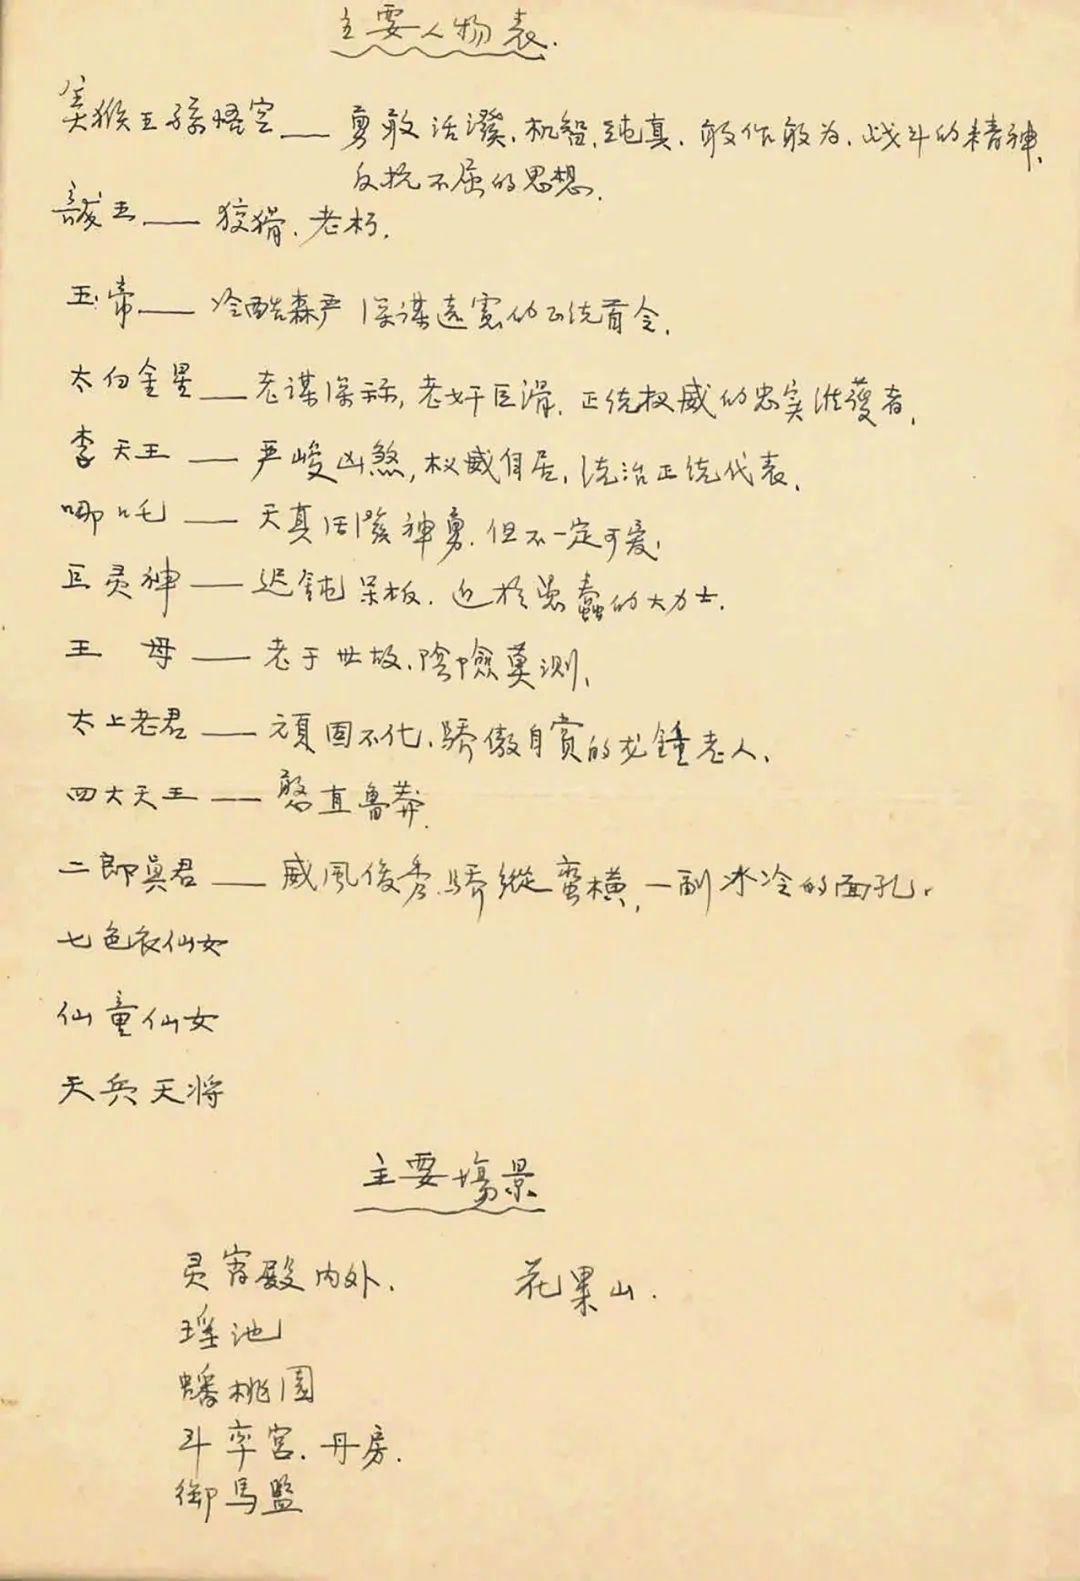 主要人物表.
美猴王孫悟空——勇敢活潑.机智.純真.敢作敢为.战斗的精神、
反抗不屈的思想.
王——狡猾.老朽.
玉帝——冷酷森严 深谋远虑的正统首令.
太白金星——老谋深算,老奸巨滑.正统权威的忠实维護者.
李天王——严峻凶煞,权威自居,统治正统代表、
哪吒——天真活潑神勇.但不一定可爱.
巨灵神——迟鈍呆板.近於愚蠢的大力士.
王母——老于世故.陰險莫测、
太上老君——頑固不化.驕傲自賞的龙鍾老人、
四大天王——憨直鲁莽.
二郎真君——威風俊秀.驕縱蛮横,一副冰冷的面孔.
七色衣仙女
仙童仙女
天兵天将
主要場景
灵宵殿内外. 花果山.
瑶池
蟠桃園
斗率宮.丹房.
御馬監